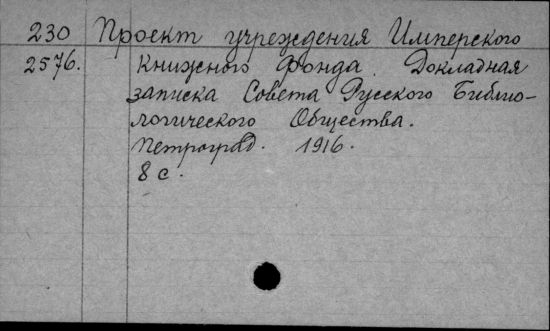 230 Проект учреждения Имперского
2576. Книжного Фонда. Докладная
записка Совета Русского Библио-
логического Общества.
Петроград. 1916.
8 с.